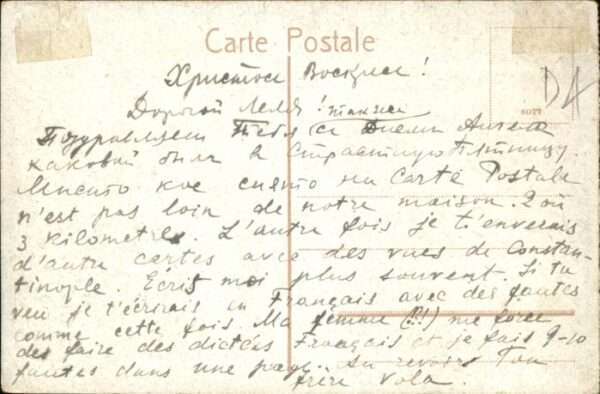 Carte Postale
DA
6077
Христосъ Воскресе!
Дорогой Леля! также
Поздравляем Тебя съ Днемъ Ангела
каковой былъ в Страстную Пятницу.
Место кое снято на Carte Postale
n'est pas loin de notre maison. 2 où
3 kilometres. L'autre fois je t'enverais
d'autre cartes avec des vues de Constan-
tinople. Ecris moi plus souvent. Si tu
veu je t'écrirais en Français avec des fautes
comme cette fois. Ma femme (?!) me force
des faire des dictées Français et je fais 9-10
fautes dans une page. Au revoir Ton
frère Vola.